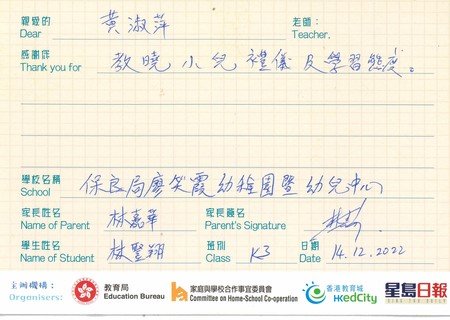 親愛的 黃淑萍 老師：
Dear Teacher,
感謝你 教曉小兒禮儀及學習態度。
Thank you for
學校名稱 保良局廖笑霞幼稚園暨幼兒中心
School
家長姓名 林嘉華 家長簽名
Name of Parent Parent's Signature
學生姓名 林豎翔 班別 K3 日期 14.12.2022
Name of Student Class Date
主辦機構：
Organisers:
教育局
Education Bureau
家庭與學校合作事宜委員會
Committee on Home-School Co-operation
香港教育城
HKedCity
星島日報
SING TAO DAILY